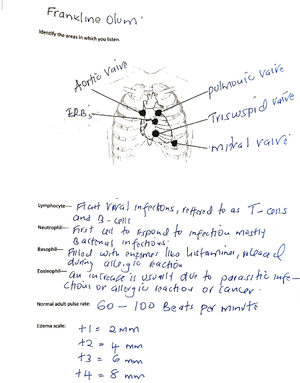 Frankline Olum
Identify the areas in which you listen.
Aortic valve
pulmonic valve
ERB's
Tricuspid valve
mitral valve
Lymphocyte— Fight Viral infections, reffered to as T-cells
and B-cells
Neutrophil— First cell to respond to infection mostly
Bacterial infections.
Basophil— Filled with enzymes like histamines, released
during allergic reaction
Eosinophil— an increase is usually due to parasitic infe-
ctions or allergic reaction or cancer.
Normal adult pulse rate: 60 - 100 Beats per minute
Edema scale:
+1 = 2mm
+2 = 4 mm
+3 = 6 mm
+4 = 8 mm